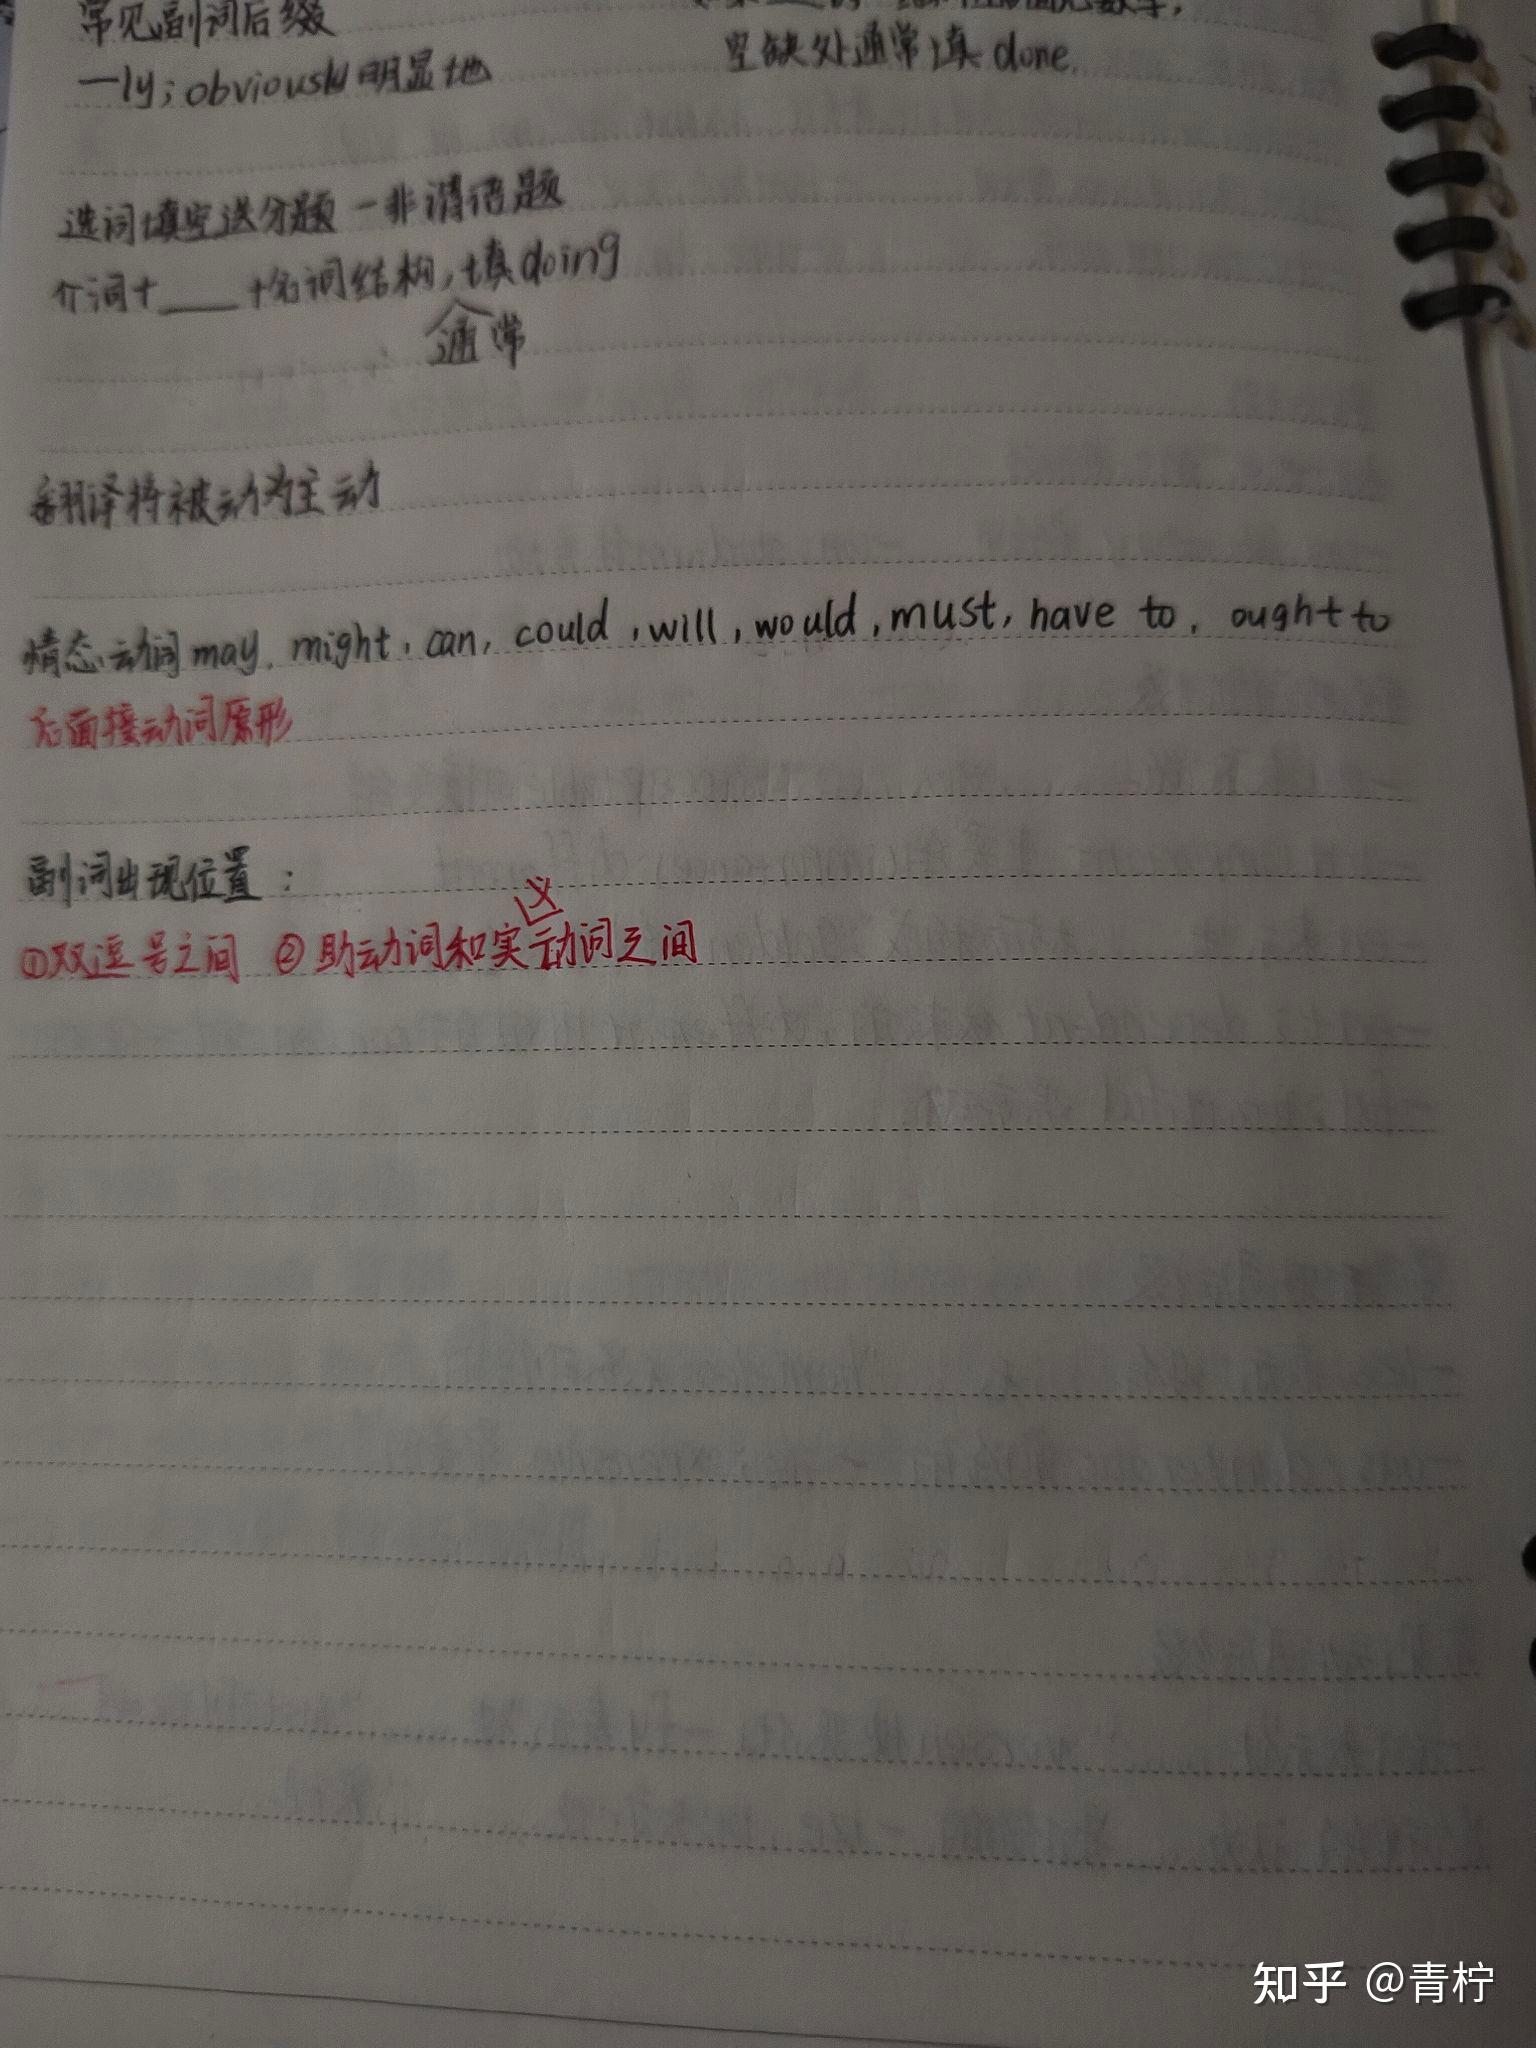 常见副词后缀
—ly；obviously明显地
空缺处通常填done.
选词填空送分题－非谓语题
介词+____+名词结构，通常填doing
翻译将被动为主动
情态动词may, might, can, could, will, would, must, have to, ought to
后面接动词原形
副词出现位置：
①双逗号之间 ②助动词和实义动词之间
知乎 @青柠